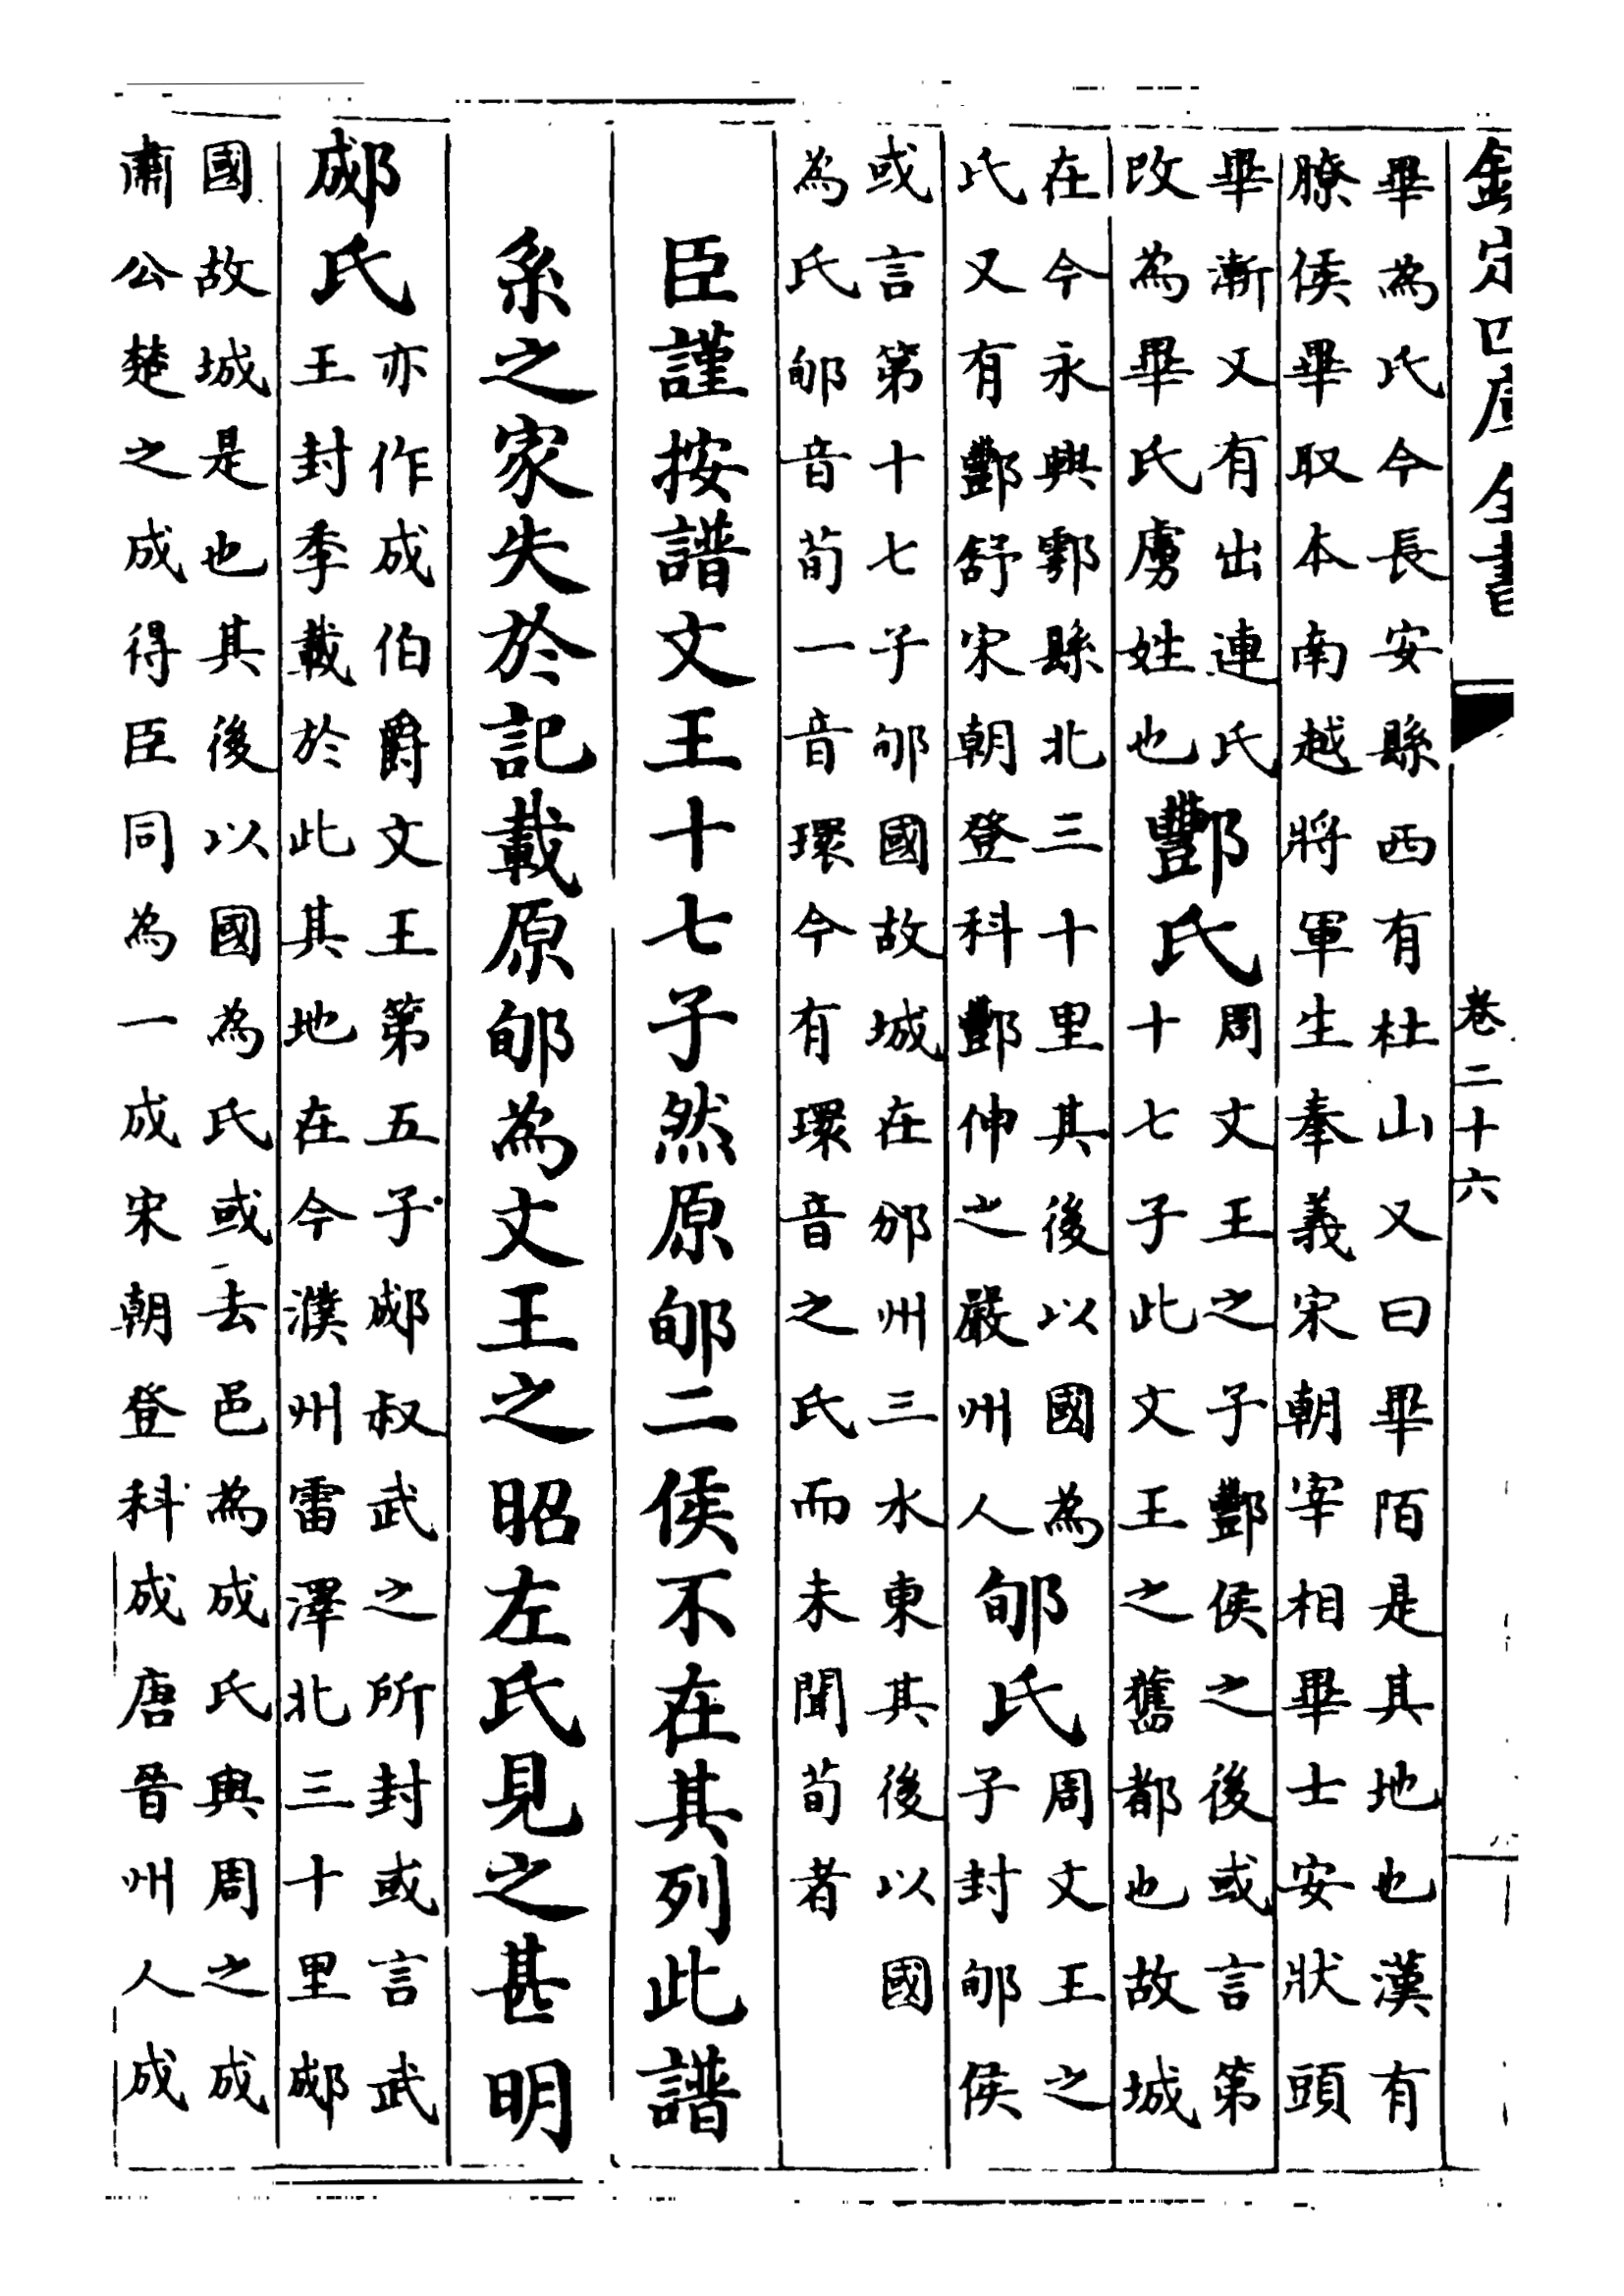 欽定四庫全書
卷二十六
畢為氏今長安縣西有杜山又曰畢陌是其地也漢有
膫侯畢取本南越將軍生奉義宋朝宰相畢士安狀頭
畢漸又有出連氏
改為畢氏虜姓也
酆氏
周文王之子酆侯之後或言第
十七子此文王之舊都也故城
在今永興鄠縣北三十里其後以國為
氏又有酆舒宋朝登科酆伸之嚴州人
郇氏
周文王之
子封郇侯
或言第十七子郇國故城在邠州三水東其後以國
為氏郇音荀一音環今有環音之氏而未聞荀者
臣謹按譜文王十七子然原郇二侯不在其列此譜
系之家失於記載原郇為文王之昭左氏見之甚明
郕氏
亦作成伯爵文王第五子郕叔武之所封或言武
王封季載於此其地在今濮州雷澤北三十里郕
國故城是也其後以國為氏或去邑為成氏與周之成
肅公楚之成得臣同為一成宋朝登科成唐晉州人成